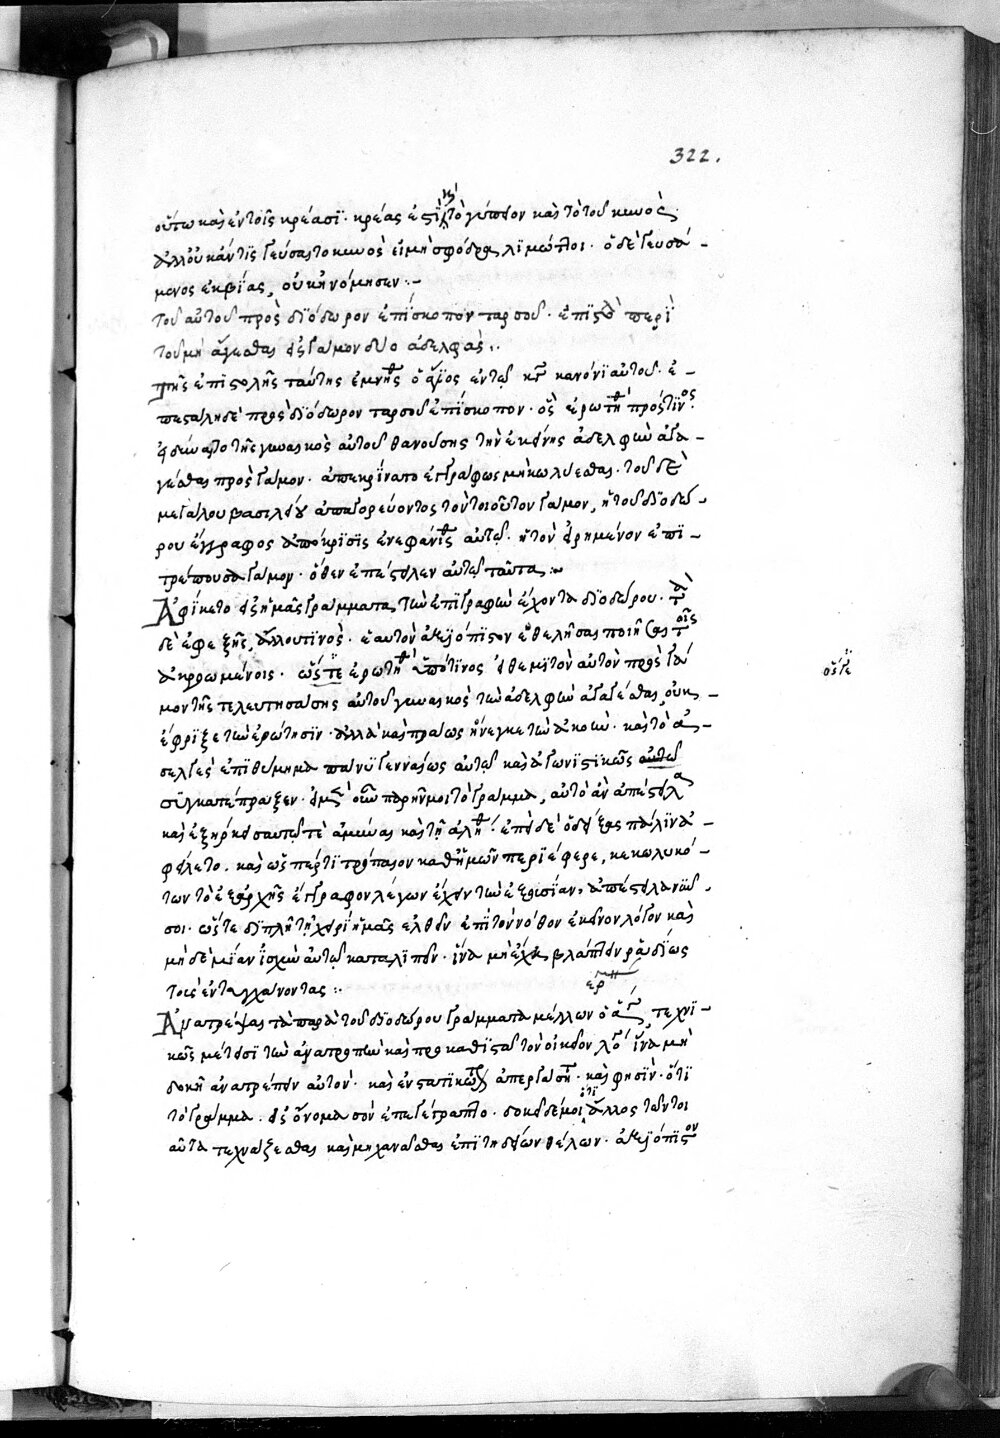 322.
οὕτω καὶ ἐν τοῖς κρέασι· κρέας ἐστὶ καὶ τὸ γύπειον καὶ τὸ τοῦ κυνὸς·
ἀλλ' οὐκ ἄν τις γεύσαιτο κυνὸς εἰ μὴ σφόδρα λιμώττοι· ὁ δὲ γευσά-
μενος ἐκ βίας, οὐκ ἠνόμησεν:-
τοῦ αὐτοῦ πρὸς διόδωρον ἐπίσκοπον ταρσοῦ· ἐπιστολὴ περὶ
τοῦ μὴ ἄγεσθαι εἰς γάμον δύο ἀδελφάς:.
τῆς ἐπιστολῆς ταύτης ἐμνήσθη ὁ ἅγιος ἐν τῷ κανόνι αὐτοῦ· ἐ-
πεστάλη δὲ πρὸς διόδωρον ταρσοῦ ἐπίσκοπον· ὃς ἐρωτηθεὶς πρός τινος·
εἰ δεῖ μετὰ τῆς γυναικὸς αὐτοῦ θανούσης τὴν ἐκείνης ἀδελφὴν ἀγα-
γέσθαι πρὸς γάμον· ἀπεκρίνατο ἐγγράφως μὴ κωλύεσθαι· τοῦ δὲ
μεγάλου βασιλείου ἀπαγορεύοντος τὸν τοιοῦτον γάμον, ἡ τοῦ διοδώ-
ρου ἔγγραφος ἀπόκρισις ἐνεφανίσθη αὐτῷ· ἡ τὸν εἰρημένον ἐπι-
τρέπουσα γάμον· ὅθεν ἐπέστειλεν αὐτῷ ταῦτα:~
Ἀφίκετο εἰς ἡμᾶς γράμματα τὴν ἐπιγραφὴν ἔχοντα διοδώρου· τὰ
δὲ ἐφεξῆς, ἄλλου τινὸς· ἑαυτὸν ἀξιόπιστον ἐθελήσας ποιῆσαι τοῖς
ἀκροωμένοις· ὥστε ἐρωτηθεὶς ὑπό τινος εἰ θεμιτὸν αὐτὸν πρὸς γά-
μον τῆς τελευτησάσης αὐτοῦ γυναικὸς τὴν ἀδελφὴν ἀγαγέσθαι, οὐκ-
ὅστε
ἔφριξε τὴν ἐρώτησιν· ἀλλὰ καὶ πράως ἤνεγκε τὴν ἀκοὴν· καὶ τὸ ἀ-
σελγὲς ἐπιθύμημα πάνυ γενναίως αὐτῷ καὶ ἀγωνιστικῶς αὐτῷ
συγκατέπραξεν· εἰ μὲν οὖν παρῆν μοι τὸ γράμμα, αὐτὸ ἂν ἀπέστειλα
καὶ ἐξήρκεις αὐτῷ τὲ ἀμύνας καὶ τῇ ἀληθείᾳ· ἐπεὶ δὲ ὁ δείξας πάλιν ἀ-
φείλετο· καὶ ὥσπερ τι τρόπαιον καθ' ἡμῶν περιέφερε, κεκωλυκό-
των τὸ ἐξ ἀρχῆς ἔγγραφον λέγων ἔχειν τὴν ἐξουσίαν, ἀπέστειλα νῦν
σοι· ὥστε διπλῇ τῇ χειρὶ ἡμᾶς ἐλθεῖν ἐπὶ τὸν νόθον ἐκεῖνον λόγον καὶ
μηδεμίαν ἰσχὺν αὐτῷ καταλιπεῖν· ἵνα μὴ ἔχῃ βλάπτειν ῥᾳδίως
τοὺς ἐντυγχάνοντας:.
Ἀνατρέψαι τὰ παρὰ τοῦ διοδώρου γράμματα μέλλων ὁ ἅγιος, τεχνι-
κῶς μέτεισι τὴν ἀνατροπὴν καὶ προκαθιστᾷ τὸν οἰκεῖον λόγον ἵνα μὴ
δοκῇ ἀνατρέπειν αὐτόν· καὶ ἐνστατικῶς ἀπεργάσηται· καὶ φησὶν· ὅτι
τὸ γράμμα· εἰς ὄνομα σὸν ἐπεγέγραπτο· δοκεῖ δέ μοι ὅτι ἄλλος ταῦτοι
αὐτὰ τεχνάξεσθαι καὶ μηχανᾶσθαι ἐπιτηδείων θέλων· ἀξιόπιστον